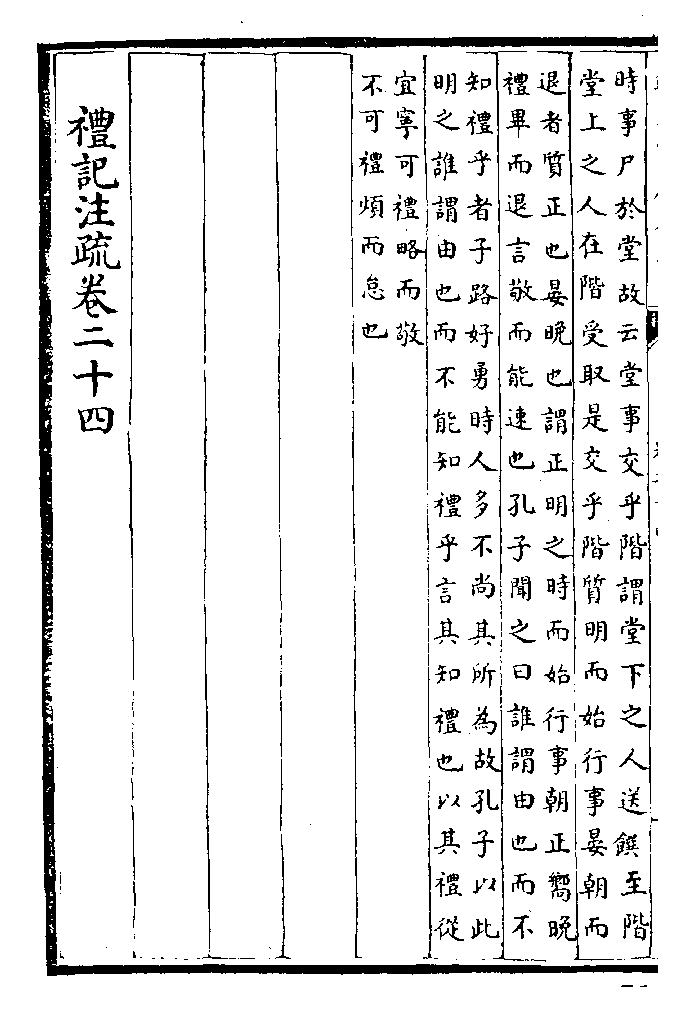 時事尸於堂故云堂事交乎階謂堂下之人送饌至階
堂上之人在階受取是交乎階質明而始行事晏朝而
退者質正也晏晚也謂正明之時而始行事朝正嚮晚
禮畢而退言敬而能速也孔子聞之曰誰謂由也而不
知禮乎者子路好勇時人多不尚其所為故孔子以此
明之誰謂由也而不能知禮乎言其知禮也以其禮從
宜寧可禮略而敬
不可禮煩而怠也
禮記注疏卷二十四